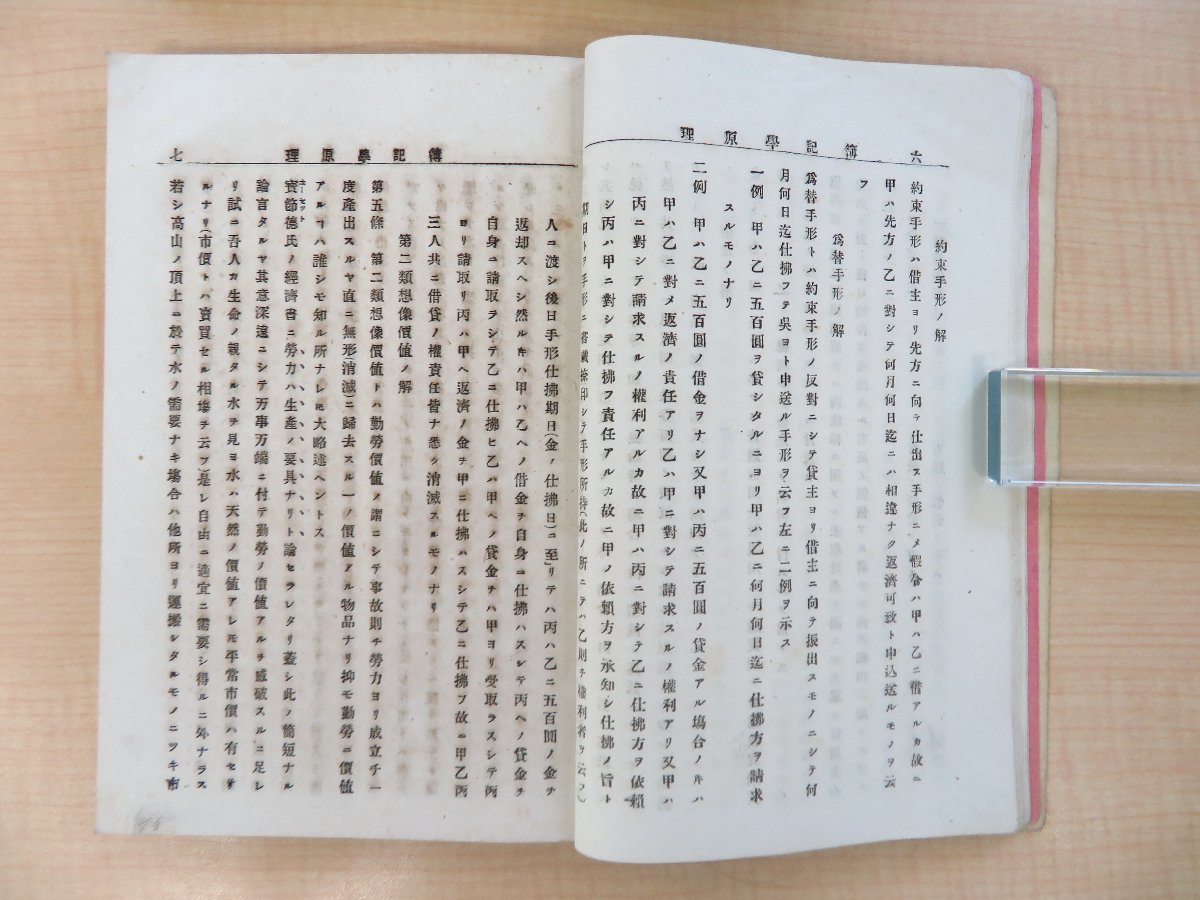 六 簿記學原理
約束手形ノ解
約束手形ハ借主ヨリ先方ニ向テ仕出ス手形ニメ假令ハ甲ハ乙ニ借アルカ故ニ
甲ハ先方ノ乙ニ對シテ何月何日迄ニハ相違ナク返濟可致ト申込送ルモノヲ云
フ
爲替手形ノ解
爲替手形トハ約束手形ノ反對ニシテ貸主ヨリ借主ニ向テ振出スモノニシテ何
月何日迄仕拂フテ吳ヨト申送ル手形ヲ云フ左ニ二例ヲ示ス
一例 甲ハ乙ニ五百圓ヲ貸シタルニヨリ甲ハ乙ニ何月何日迄ニ仕拂方ヲ請求
スルモノナリ
二例 甲ハ乙ニ五百圓ノ借金ヲナシ又甲ハ丙ニ五百圓ノ貸金アル塲合ノキハ
甲ハ乙ニ對メ返濟ノ責任アリ乙ハ甲ニ對シテ請求スルノ權利アリ又甲ハ
丙ニ對シテ請求スルノ權利アルカ故ニ甲ハ丙ニ對シテ乙ニ仕拂方ヲ依賴
シ丙ハ甲ニ對シテ仕拂フ責任アルカ故ニ甲ノ依賴方ヲ承知シ仕拂ノ旨ト
期日トヲ手形ニ記載捺印シテ手形所持(此ノ所ニテハ乙則チ權利者ヲ云フ)
簿記學原理 七
人ニ渡シ後日手形仕拂期日(金ノ仕拂日)ニ至リテハ丙ハ乙ニ五百圓ノ金チ
返却スヘシ然ルキハ甲ハ乙ヘノ借金チ自身ニ仕拂ハスシテ丙ヘノ貸金チ
自身ニ請取ラシテ乙ニ仕拂ヒ乙ハ甲ヘノ貸金チハ甲ヨリ受取ラスシテ丙
ヨリ請取リ丙ハ甲ヘ返濟ノ金チ甲ニ仕拂ハスシテ乙ニ仕拂フ故ニ甲乙丙
三人共ニ借貸ノ權責任皆ナ悉ク消滅スルモノナリ
第二類想像價値ノ解
第五條 第二類想像價値トハ勤勞價値ノ謂ニシテ事故則チ勞力ヨリ成立チ一
度產出スルヤ直ニ無形(消滅)ニ歸去スル一ノ價値アル物品ナリ抑モ勤勞ニ價値
アルヿハ誰シモ知ル所ナレ𪜈大略述ヘントス
寶節德氏ノ經濟書ニ勞力ハ生產ノ要具ナリト論セラレタリ蓋シ此ノ簡短ナル
論言タルヤ其意深遠ニシテ万事万端ニ付テ勤勞ノ價値アルチ感破スルニ足レ
リ試ニ吾人カ生命ノ親タル水チ見ヨ水ハ天然ノ價値アレ𪜈平常市價ハ有セサ
ルナリ(市價トハ賣買セル相塲チ云フ)是レ自由ニ適宜ニ需要シ得ルニ外ナラス
若シ高山ノ頂上ニ於テ水ノ需要ナキ塲合ハ他所ヨリ運搬シタルモノニツキ市